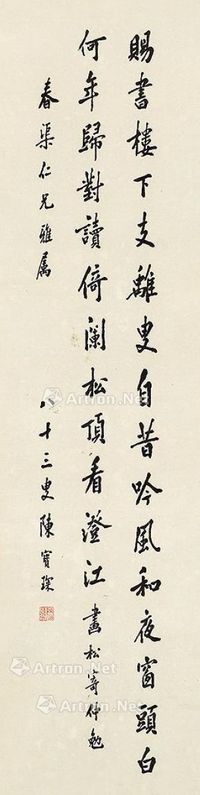 賜書樓下支離叟自昔吟風和夜窗頭白
何年歸對讀倚闌松頂看澄江 畫松寄仲勉
春渠仁兄雅屬
八十三叟陳寶琛
Artron.Net
Artron.Net